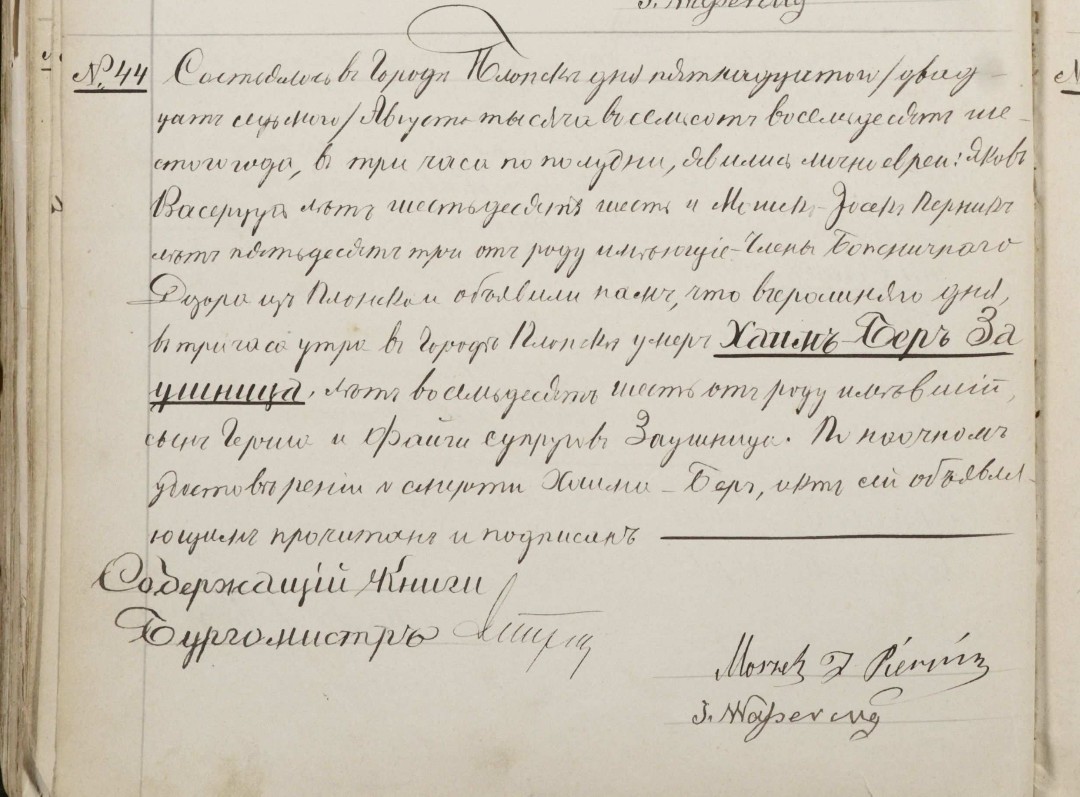 № 44 Состоялось въ Городѣ Плонскѣ дня пятнадцатого /двад-
цать седьмого/ Августа тысяча восемьсотъ восемьдесятъ ше-
стого года, въ три часа по полудни, явились лично евреи: Яковъ
Васерцугъ лѣтъ шестьдесятъ шесть и Мошекъ-Іосекъ Перникъ
лѣтъ пятьдесятъ три отъ роду имѣющіе-Члены Божничнаго
Дозора изъ Плонска и объявили намъ, что вчерашняго дня,
въ три часа утра въ Городѣ Плонскѣ умеръ Хаимъ-Беръ За
ушница, лѣтъ восемьдесятъ шесть отъ роду имѣвшій,
сынъ Герша и Файги супруговъ Заушница. По наочномъ
удостовѣреніи о смерти Хаима-Бера, актъ сей объявля-
ющимъ прочитанъ и подписанъ
Содержащій Книги
Бургомистръ
Moszek J Pernik
J. Waßerzug